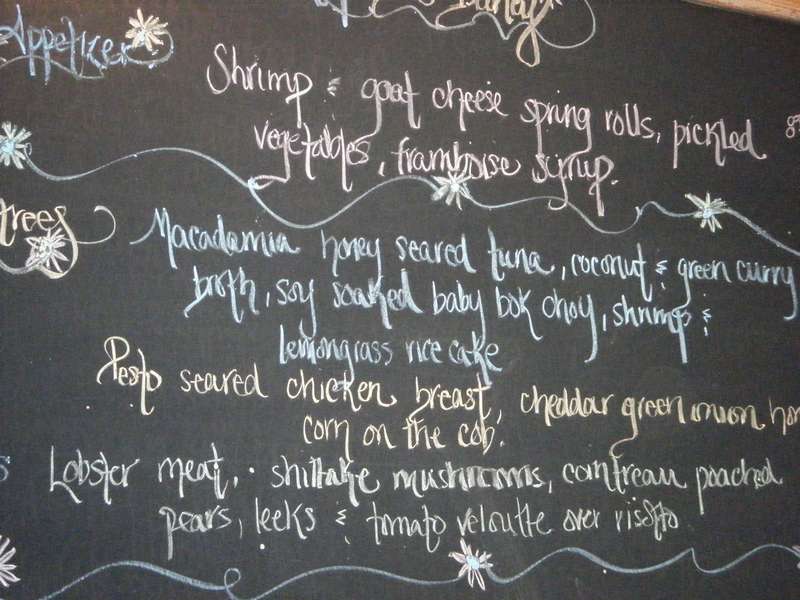 Barley
Appetizer
Shrimp & goat cheese spring rolls, pickled
vegetables, framboise syrup.
trees
Macadamia honey seared tuna, coconut & green curry
broth, soy soaked baby bok choy, shrimp &
lemongrass rice cake
Pesto seared chicken breast, cheddar green onion
corn on the cob.
Lobster meat, shiitake mushrooms, contreau poached
pears, leeks & tomato veloutte over risotto